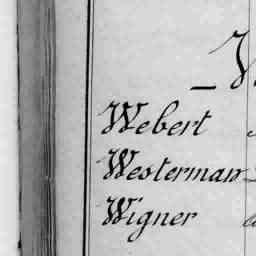 Webert
Westerman
Wigner